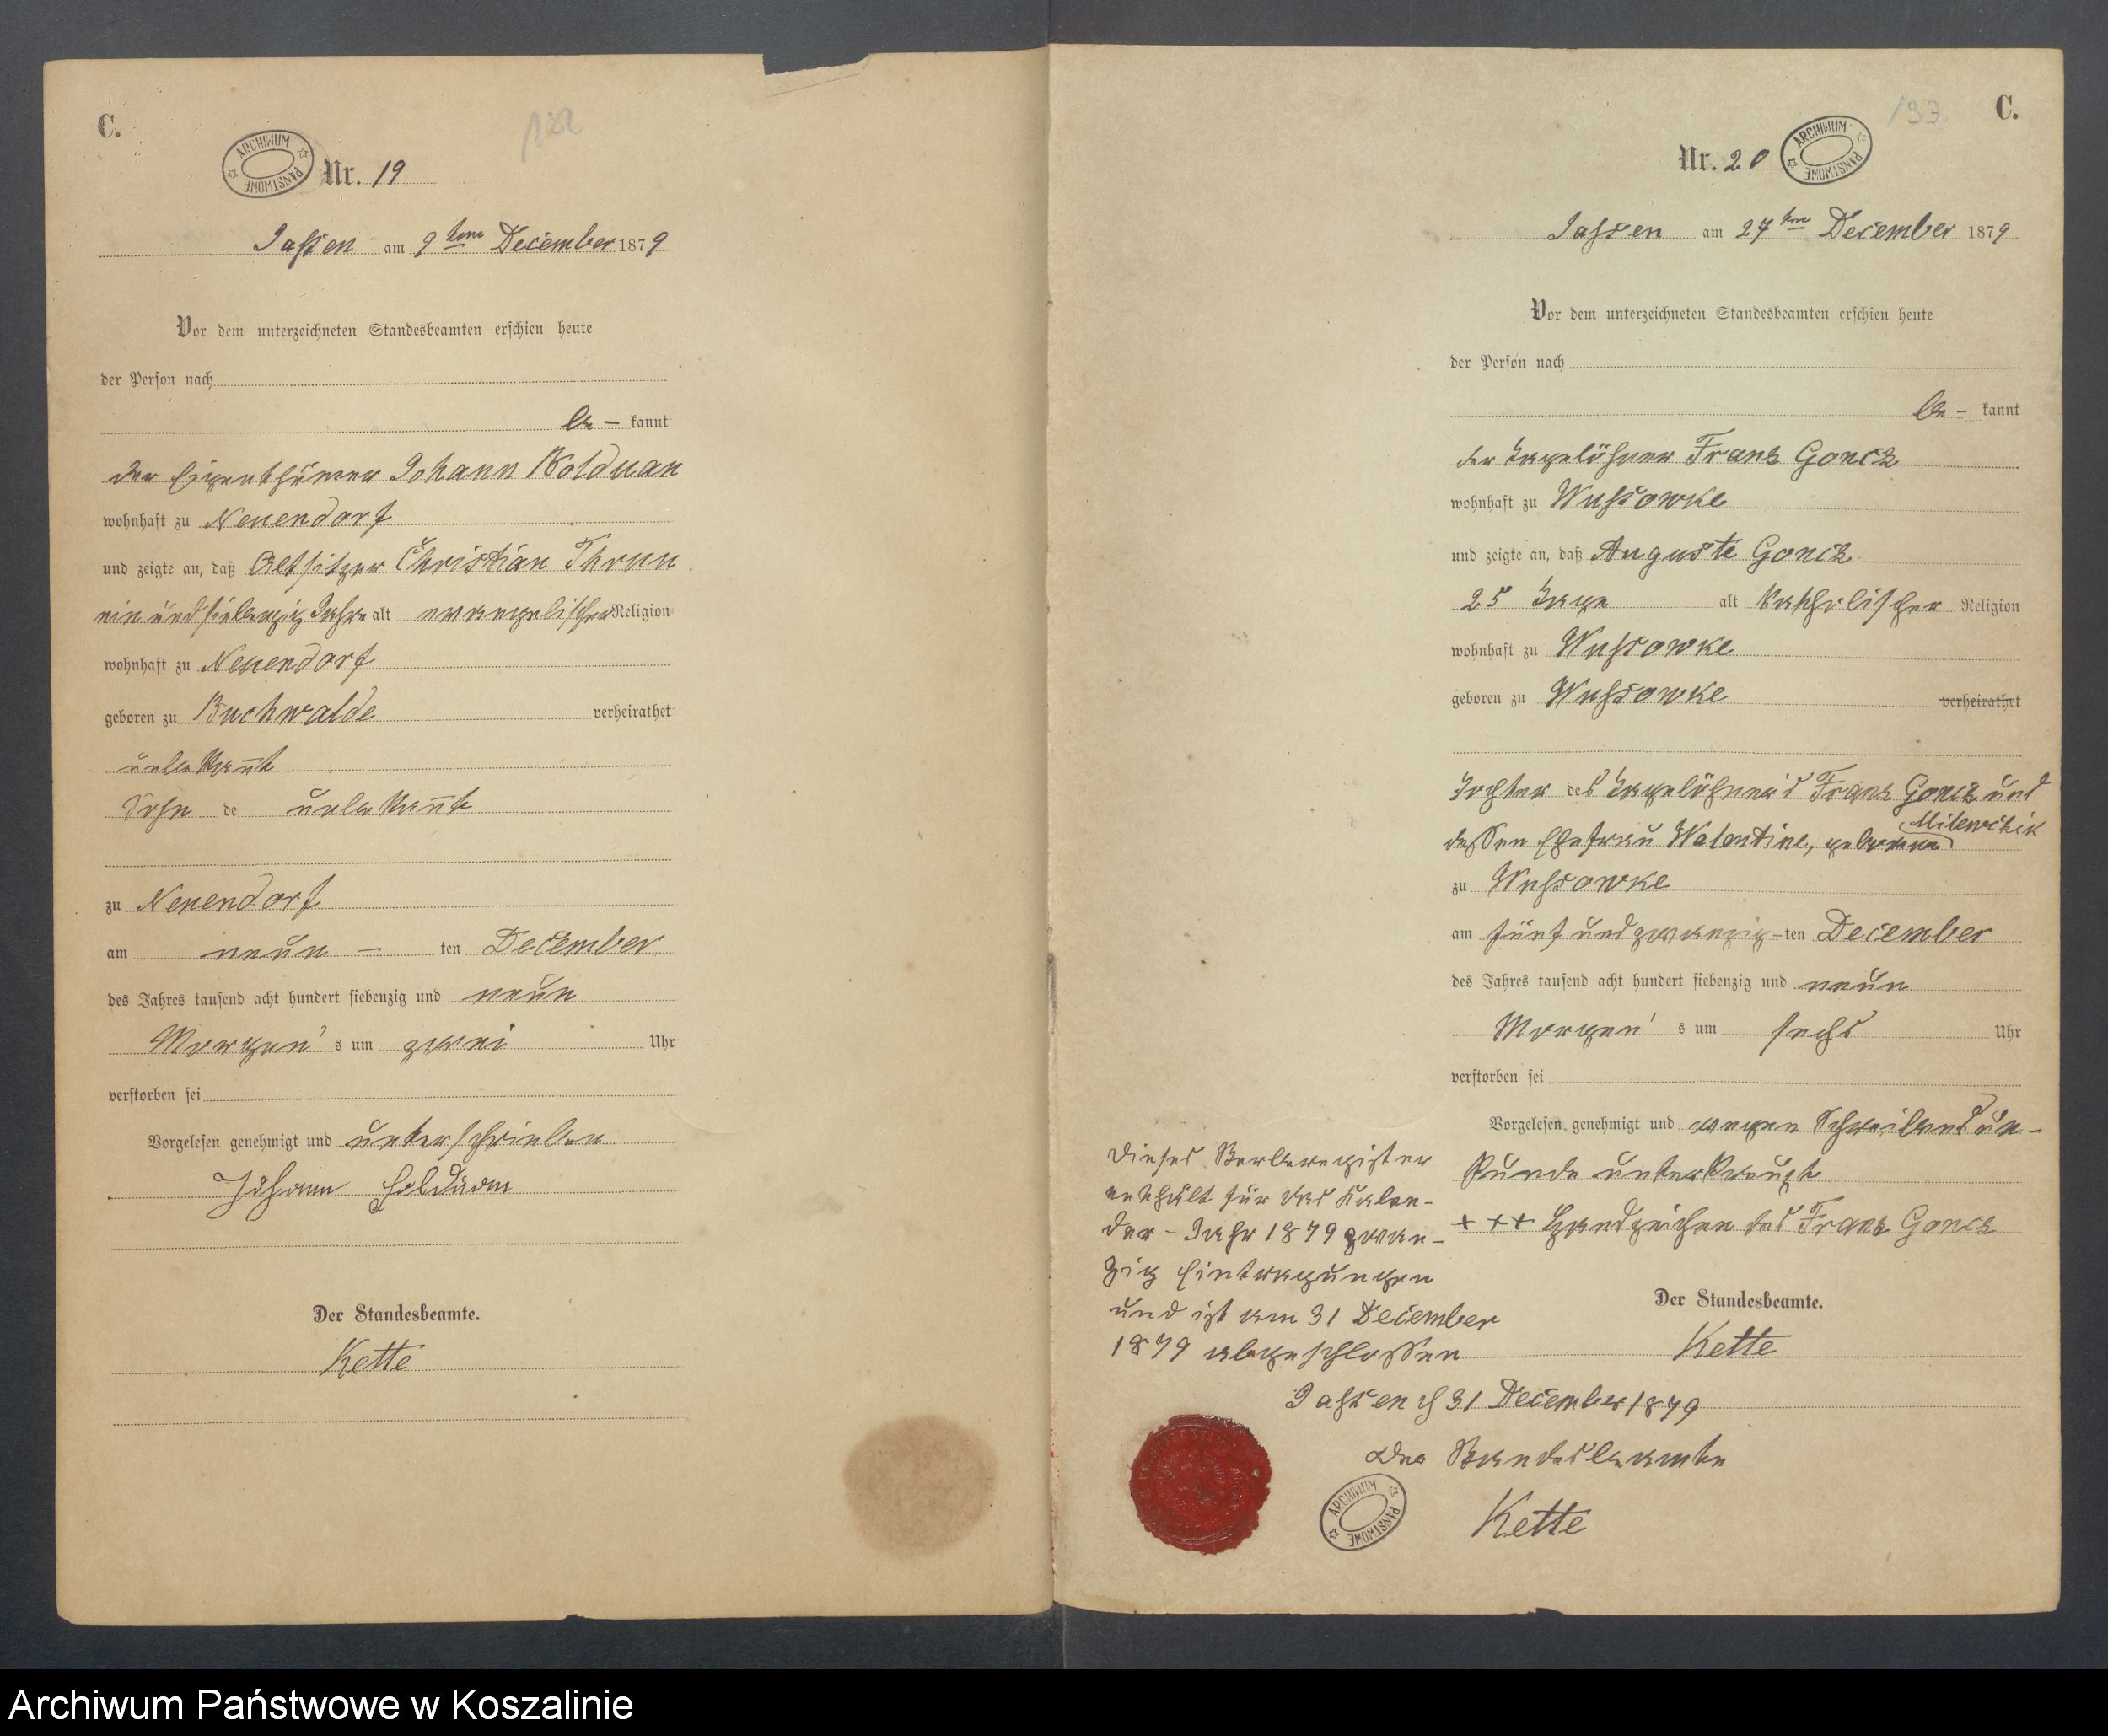 C.
ARCHIWUM PAŃSTWOWE
Nr. 19
132
Jassen am 9ten December 1879
Vor dem unterzeichneten Standesbeamten erschien heute
der Person nach
be- kannt
der Eigenthümer Johann Kolduan
wohnhaft zu Neuendorf
und zeigte an, daß Altsitzer Christian Thrun
ein und siebenzig Jahre alt evangelischer Religion
wohnhaft zu Neuendorf
geboren zu Buchwalde verheirathet
unbekannt
Sohn de unbekannt
zu Neuendorf
am neun - ten December
des Jahres tausend acht hundert siebenzig und neun
Morgen's um zwei Uhr
verstorben sei
Vorgelesen genehmigt und unterschrieben
Johann
Der Standesbeamte.
Kette
133
C.
Nr. 20
ARCHIWUM PAŃSTWOWE
Jassen am 27ten December 1879
Vor dem unterzeichneten Standesbeamten erschien heute
der Person nach
be- kannt
der Tagelöhner Franz Goncz
wohnhaft zu Wussowke
und zeigte an, daß Auguste Goncz
25 Tage alt katholischer Religion
wohnhaft zu Wussowke
geboren zu Wussowke verheirathet
Tochter des Tagelöhners Franz Goncz und
Milewczik
dessen Ehefrau Valentine, geborene
zu Wussowke
am fünf und zwanzig-ten December
des Jahres tausend acht hundert siebenzig und neun
Morgen's um sechs Uhr
verstorben sei
Vorgelesen genehmigt und wegen Schreibens un-
kunde unterkreuzt
+++ Handzeichen des Franz Goncz
Der Standesbeamte.
Kette
Dieses Sterberegister
enthält für das Kalen-
der-Jahr 1879 zwan-
zig Eintragungen
und ist am 31 December
1879 abgeschlossen
Jassen d 31 December 1879
Der Standesbeamte
ARCHIWUM PAŃSTWOWE
Kette
Archiwum Państwowe w Koszalinie